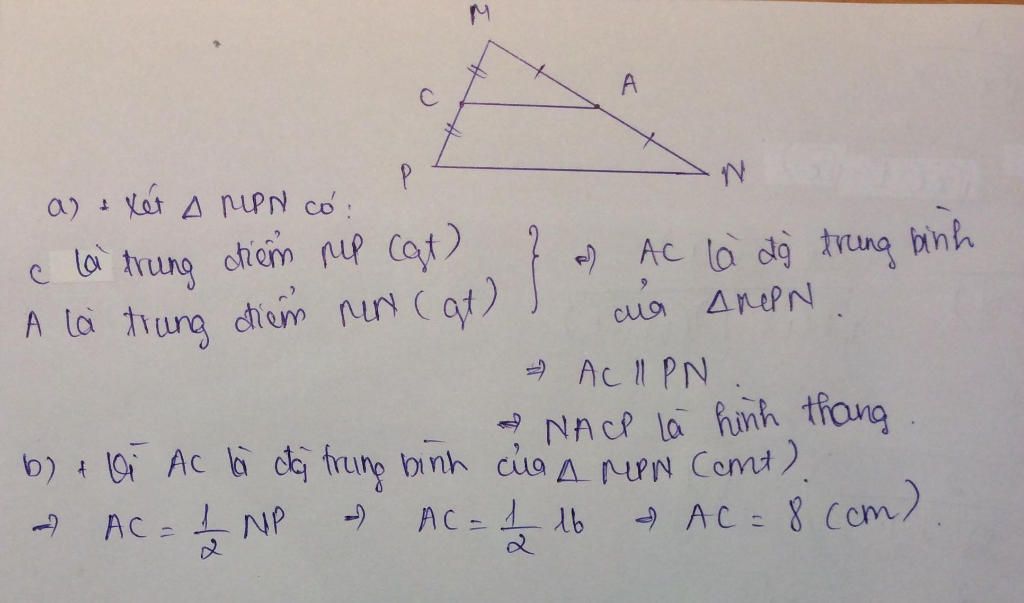 M
C A
P N
a) + Xét △ MPN có:
C là trung điểm MP (gt)
A là trung điểm MN (gt) } ⇒ AC là độ trung bình
của △MPN.
⇒ AC || PN.
⇒ NACP là hình thang.
b) + Vì AC là độ trung bình của △ MPN (cmt).
⇒ AC = 1/2 NP ⇒ AC = 1/2 16 ⇒ AC = 8 (cm).